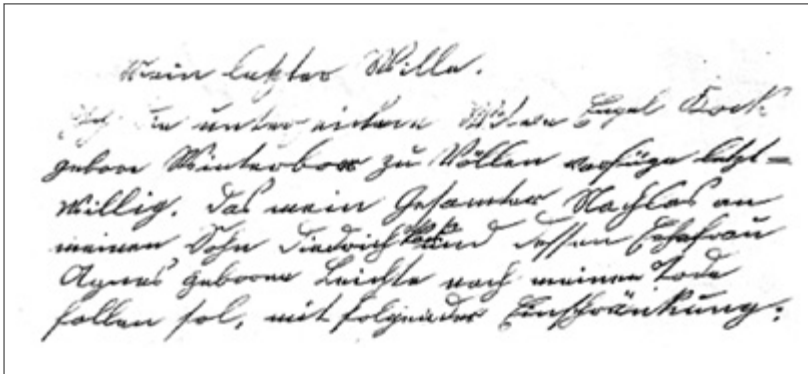 Mein letzter Wille.
Ich die unterzeichnete Witwe Engel Kock
geboren Winterboer zu Völlen verfüge letzt=
willig, das mein Gesamter Nachlas an
meinen Sohn Diedrich Kock und dessen Ehefrau
Agnes geboren Leichte nach meinen Tode
fallen sol, mit folgender Einschränkung: